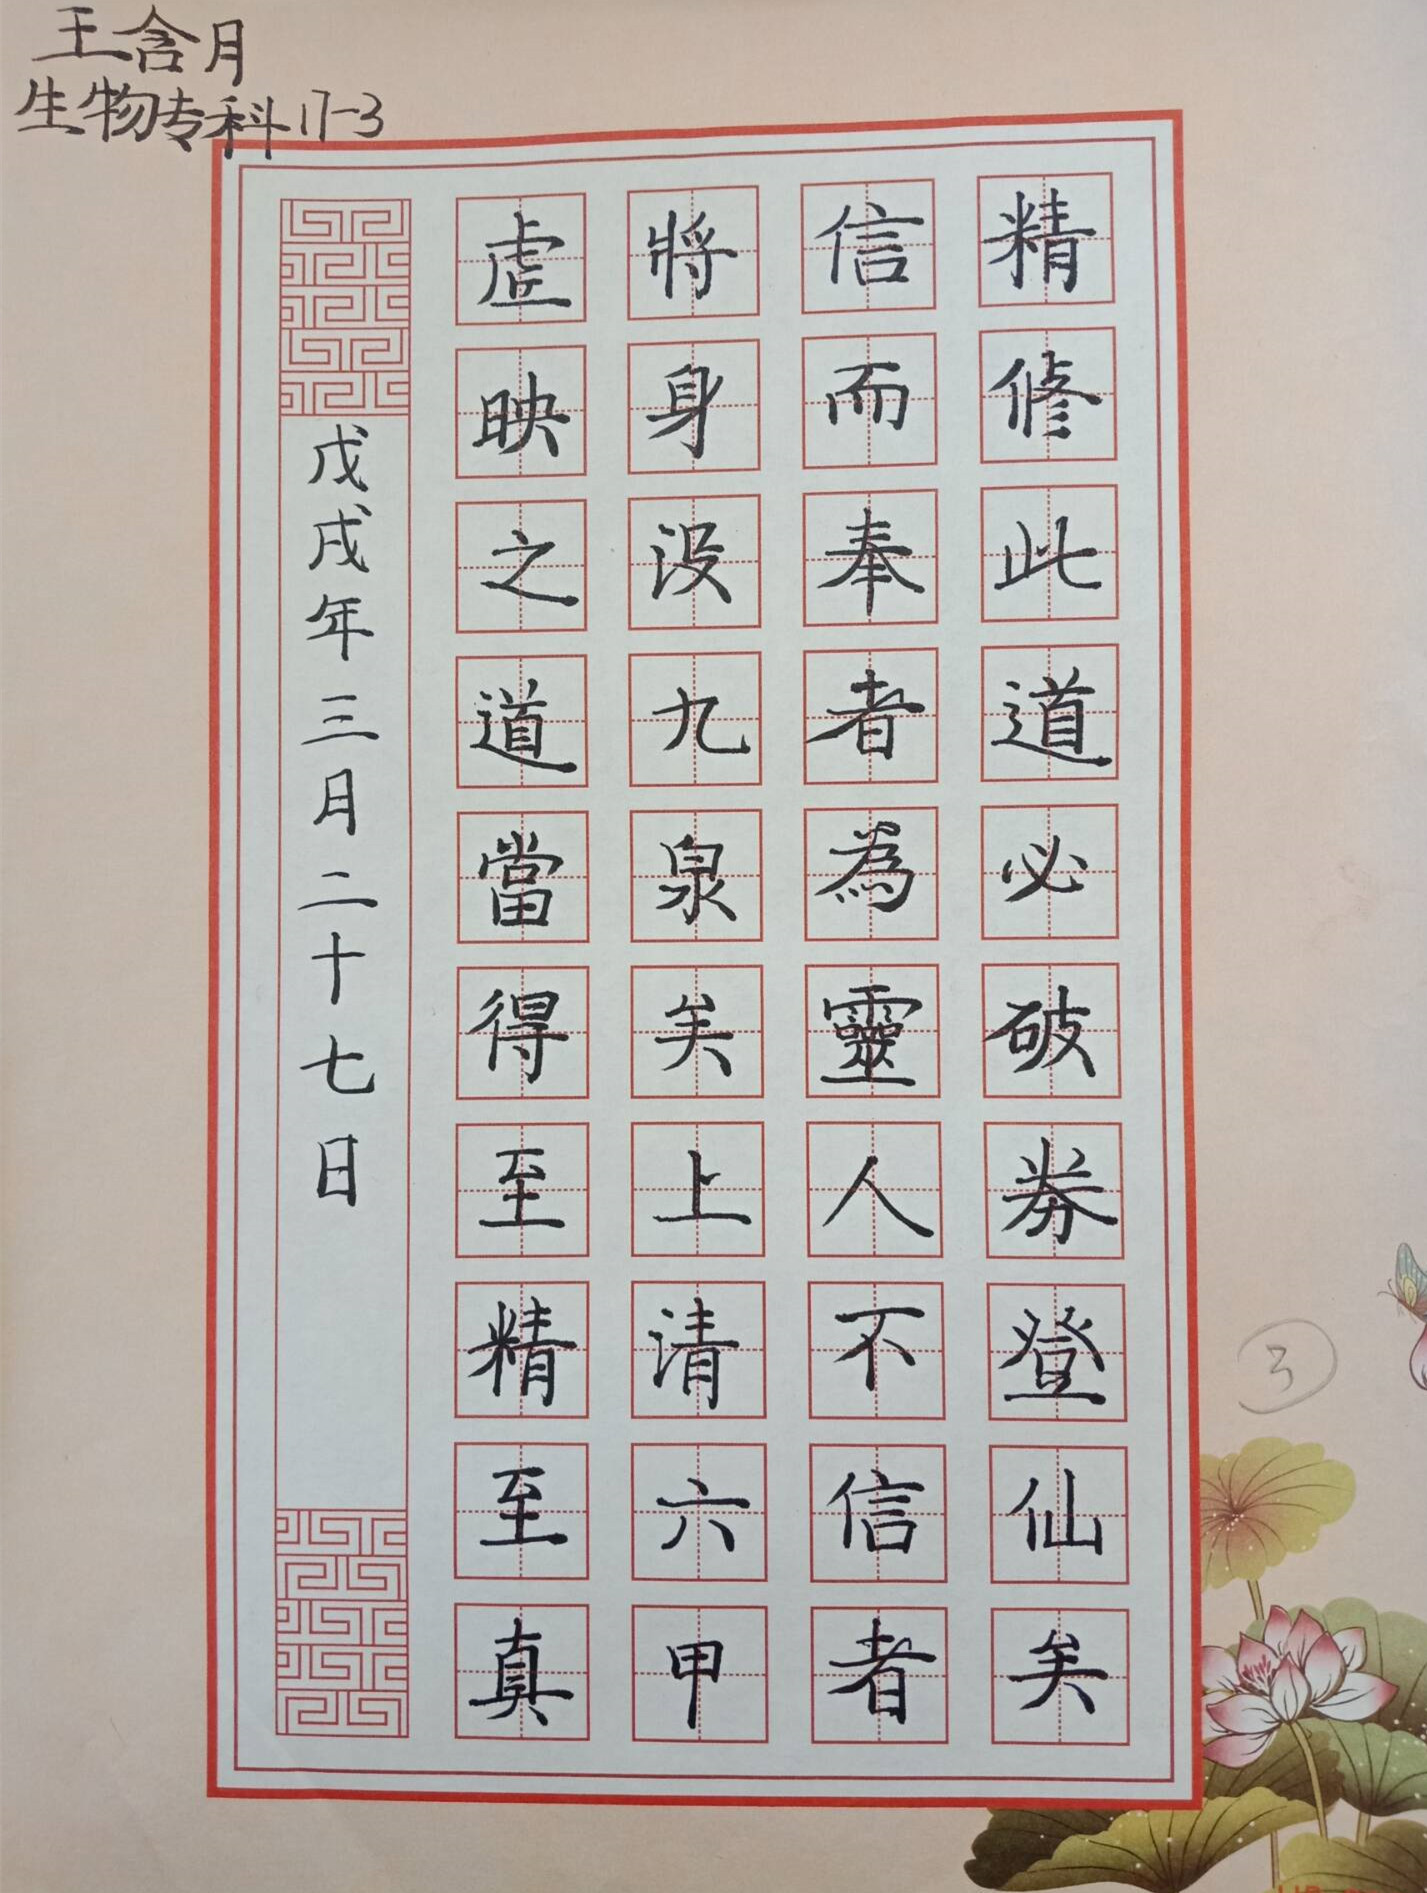 王含月
生物专科17-3
精修此道必破券登仙矣
信而奉者為靈人不信者
將身没九泉矣上清六甲
虚映之道當得至精至真
戊戌年三月二十七日
3